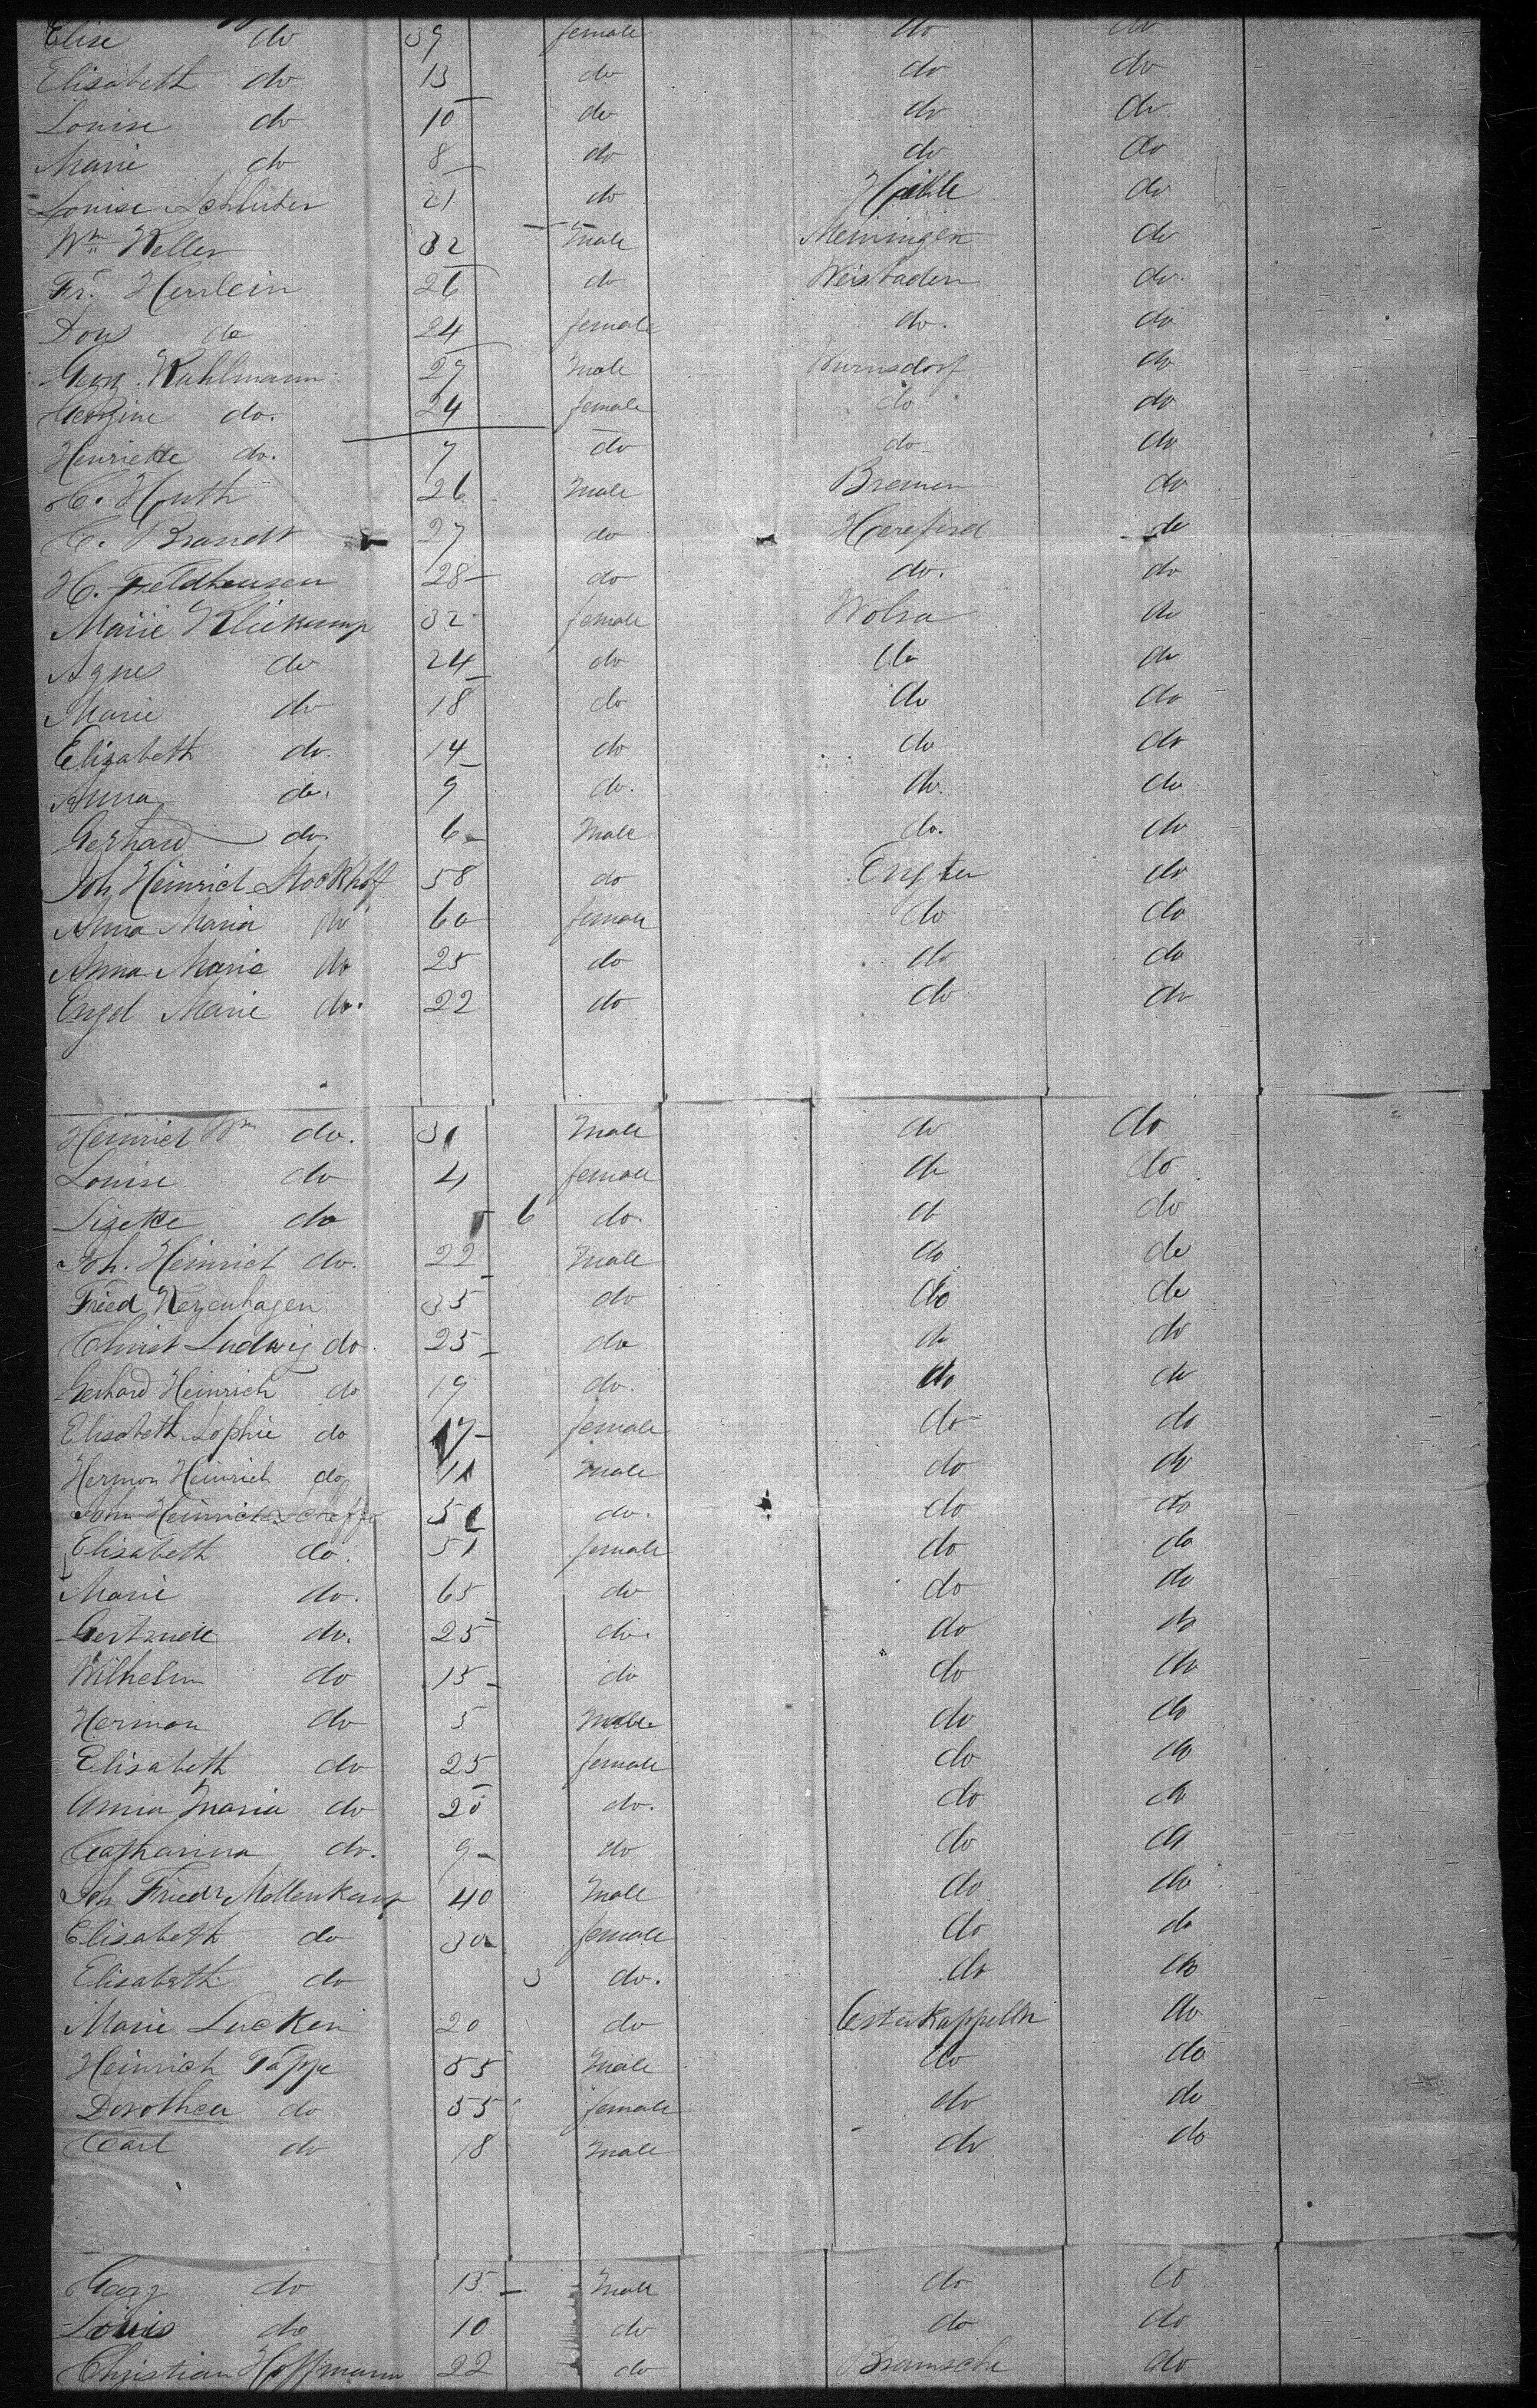 Elise do 39 female do do
Elisabeth do 13 do do do
Louise do 10 do do do
Marie do 8 do do do
Louise Schluter 21 do do
Wm Keller 32 male Meiningen do
Fr. Herrlein 26 do Weisbaden do.
do 24 female do. do
Georg Kuhlmann 29 male Wurnsdorf do
Georgine do. 24 female do do
Henriette do. 7 do do do
C. Huth 26 male Bremen do
C. Brandt 27 do Hereford do
H. Feldhausen 28 do do. do
Marie Kliekamp 32 female Wolsa do
Agnes do 24 do do do
Marie do 18 do do do
Elizabeth do. 14 do do do
Anna do. 9 do. do. do
Gerhard do. 6 male do. do
Joh Heinrich Stockhoff 58 do Engter do
Anna Maria do 60 female do do
Anna Marie do 25 do do do
Engel Marie do. 22 do do do
Heinrich Wm do. 31 male do do
Louise do 4 female do do
Lizette do 6 do. do do
Joh. Heinrich do. 22 male do do
Fried Kezenhagen 35 do do do
Christ Ludwig do. 25 do do do
Gerhard Heinrich do 19 do. do do
Elisabeth Sophie do 17 female do do
Herman Heinrich do 11 male do do
John Heinrich 51 do. do do
Elisabeth do. 51 female do do
Marie do. 65 do do do
Gertrude do. 25 do. do do
Wilhelm do 15 do do do
Herman do 5 male do do
Elisabeth do 25 female do do
Anna Maria do 20 do. do do
Catharina do. 9 do do do
Joh Friedr Mollenkamp 40 male do do
Elisabeth do 30 female do do
Elisabeth do 3 do. do do
Marie Lucken 20 do Osterkappeln do
Heinrich Tappe 55 male do do
Dorothea do 55 female do do
Carl do 18 male do do
Georg do 15 male do do
Louis do 10 do do do
Christian Hoffmann 22 do Bramsche do